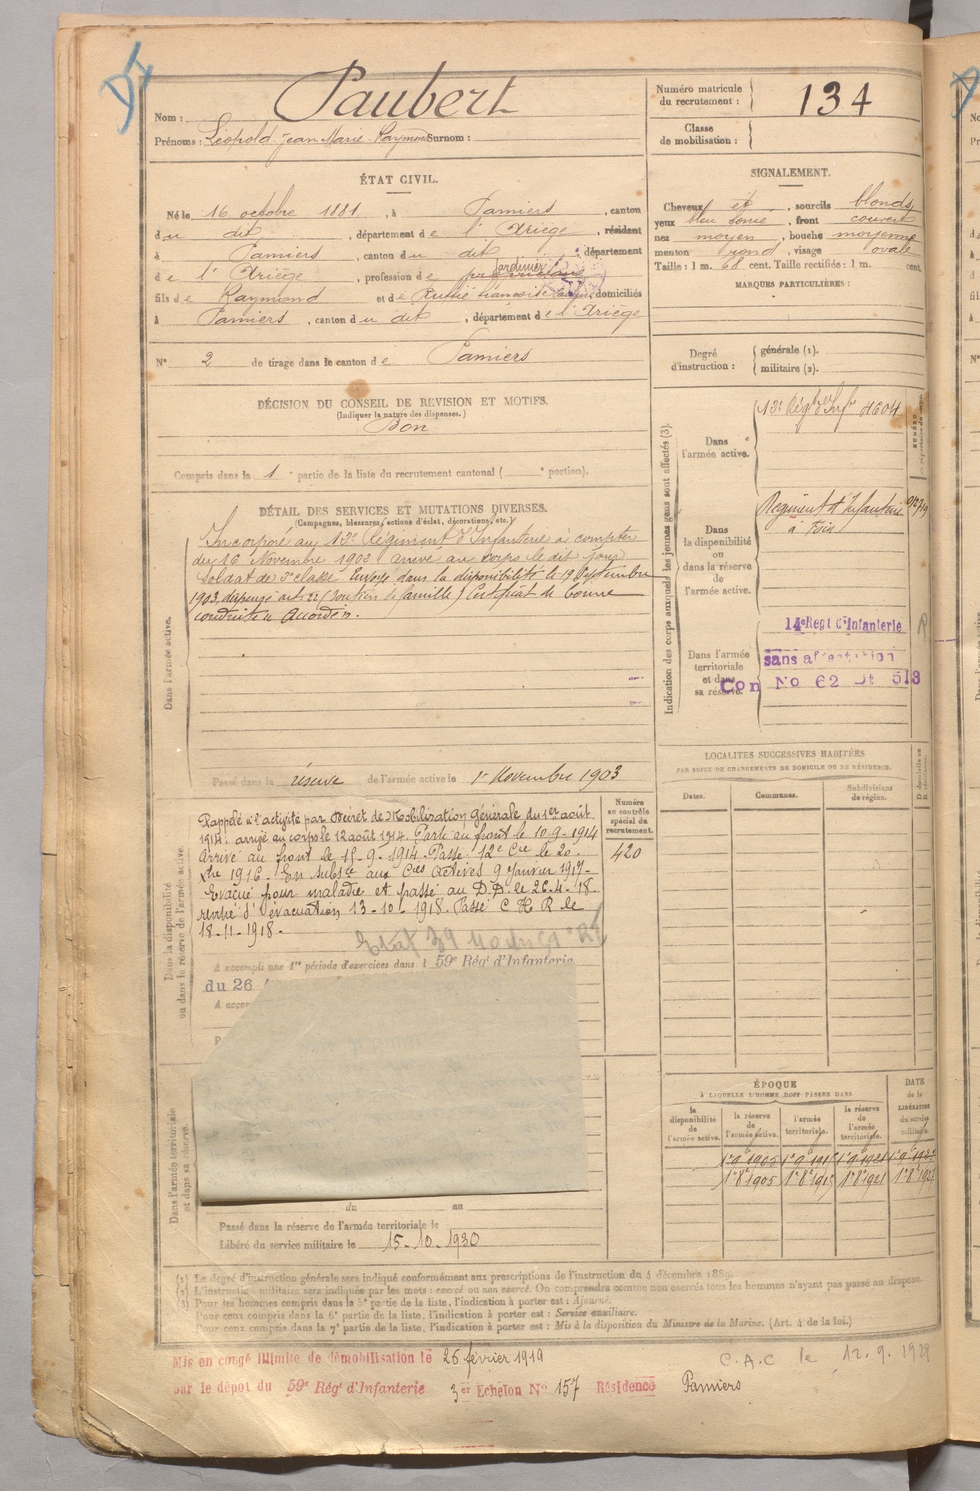 Nom : Paubert
Prénoms : Léopold Jean Marie Raymond Surnom :
Numéro matricule du recrutement : 134
Classe de mobilisation :
ÉTAT CIVIL.
Né le 16 octobre 1881, à Pamiers, canton
du dit, département de l'Ariège, résidant
à Pamiers, canton du dit, département
de l'Ariège, profession de propriétaire jardinier
fils de Raymond et de domiciliés
à Pamiers, canton du dit, département de l'Ariège
N° 2 de tirage dans le canton de Pamiers
SIGNALEMENT.
Cheveux et, sourcils blonds,
yeux bleu foncé, front couvert
nez moyen, bouche moyenne
menton rond, visage ovale
Taille : 1 m. 68 cent. Taille rectifiée : 1 m. cent.
MARQUES PARTICULIÈRES :
Degré d'instruction : générale (1).
militaire (2).
DÉCISION DU CONSEIL DE REVISION ET MOTIFS.
(Indiquer la nature des dispenses.)
Bon
Compris dans la 1e partie de la liste du recrutement cantonal ( e portion).
DÉTAIL DES SERVICES ET MUTATIONS DIVERSES.
(Campagnes, blessures, actions d'éclat, décorations, etc.)
Dans l'armée active.
Incorporé au Régiment d'Infanterie à compter
du 16 Novembre 1902 arrivé au corps le dit jour
soldat de 2e classe. Envoyé dans la disponibilité le 19 Septembre
1903, dispensé art. 22 (Soutien de famille) Certificat de bonne
conduite "Accordé".
Passé dans la réserve de l'armée active le 1er Novembre 1903
Indication des corps auxquels les jeunes gens sont affectés (3).
Dans l'armée active.
Dans la disponibilité ou dans la réserve de l'armée active.
Régiment d'Infanterie
à Foix
Dans l'armée territoriale et dans sa réserve.
14e Regt d'Infanterie
sans affectation
Con No 62 Dt 513
LOCALITÉS SUCCESSIVES HABITÉES
PAR SUITE DE CHANGEMENTS DE DOMICILE OU DE RÉSIDENCE.
Dates. Communes. Subdivisions de région.
Dans la disponibilité ou dans la réserve de l'armée active.
Numéro au contrôle spécial du recrutement.
420
Rappelé à l'activité par Décret de Mobilisation Générale du 1er août
1914, arrivé au corps le 12 août 1914. Parti au front le 10-9-1914
Arrivé au front le 15-9-1914. Passé 12e Cie le 20
Xbre 1916. En subsce aux Cies actives 9 Janvier 1917.
Evacué pour maladie et passé au D.D. le 26-4-18.
rentré d'évacuation 13-10-1918. Passé C H R le
18-11-1918.
A accompli une 1re période d'exercices dans l 59e Régt d'Infanterie
du 26
Dans l'armée territoriale et dans sa réserve.
du au
Passé dans la réserve de l'armée territoriale le
Libéré du service militaire le 15-10-1930
ÉPOQUE
À LAQUELLE L'HOMME DOIT PASSER DANS
la disponibilité de l'armée active. la réserve de l'armée active. l'armée territoriale. la réserve de l'armée territoriale. DATE de la LIBÉRATION du service militaire.
(1) Le degré d'instruction générale sera indiqué conformément aux prescriptions de l'instruction du 4 décembre 1889.
(2) L'instruction militaire sera indiquée par les mots : exercé ou non exercé. On comprendra comme non exercés tous les hommes n'ayant pas passé au drapeau.
(3) Pour les hommes compris dans la 5e partie de la liste, l'indication à porter est : Ajourné.
Pour ceux compris dans la 6e partie de la liste, l'indication à porter est : Service auxiliaire.
Pour ceux compris dans la 7e partie de la liste, l'indication à porter est : Mis à la disposition du Ministre de la Marine. (Art. 4 de la loi.)
Mis en congé illimité de démobilisation le 26 février 1919
par le dépôt du 59e Régt d'Infanterie 3er Echelon No 157 Résidence Pamiers
C.A.C le 12.9.1929